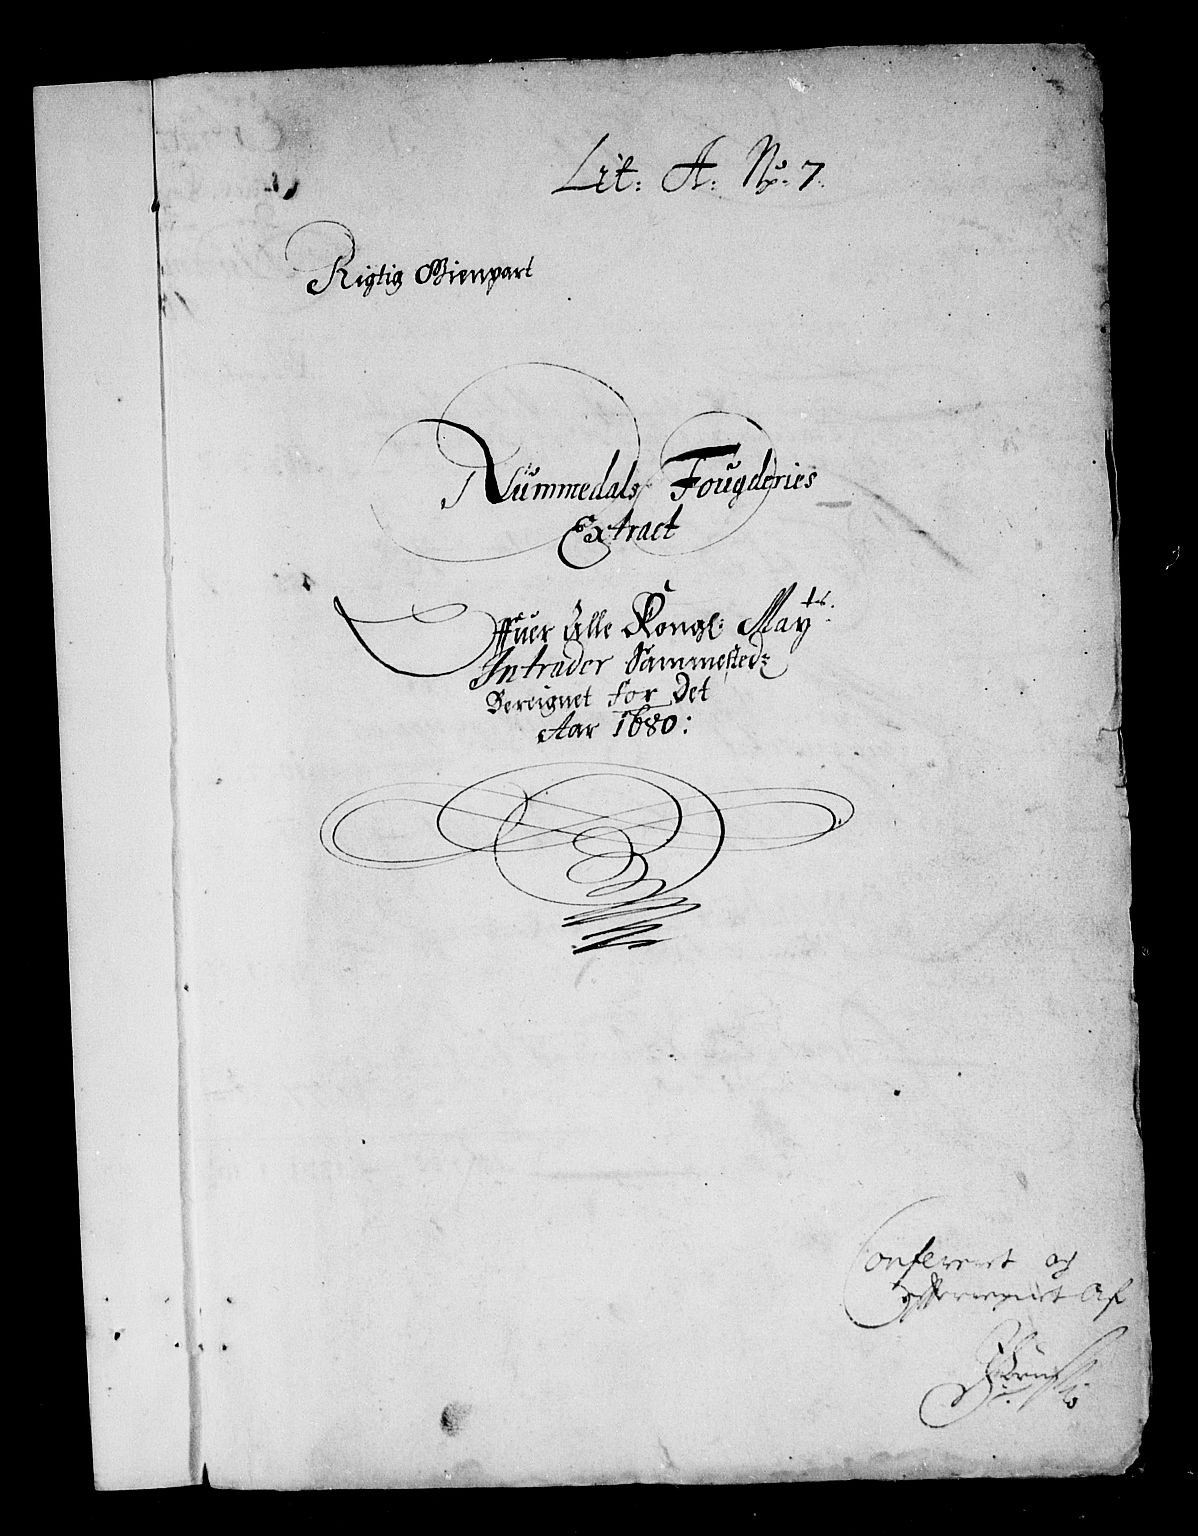 Lit: A: No: 7.
Rigtig Gienpart
Nummedals Fougderies
Extract
Ofuer Alle Kongl: Mayts:
Intrader Sammesteds
Bereignet for Det
Aar 1680:
Confereret og
efterregnet Af